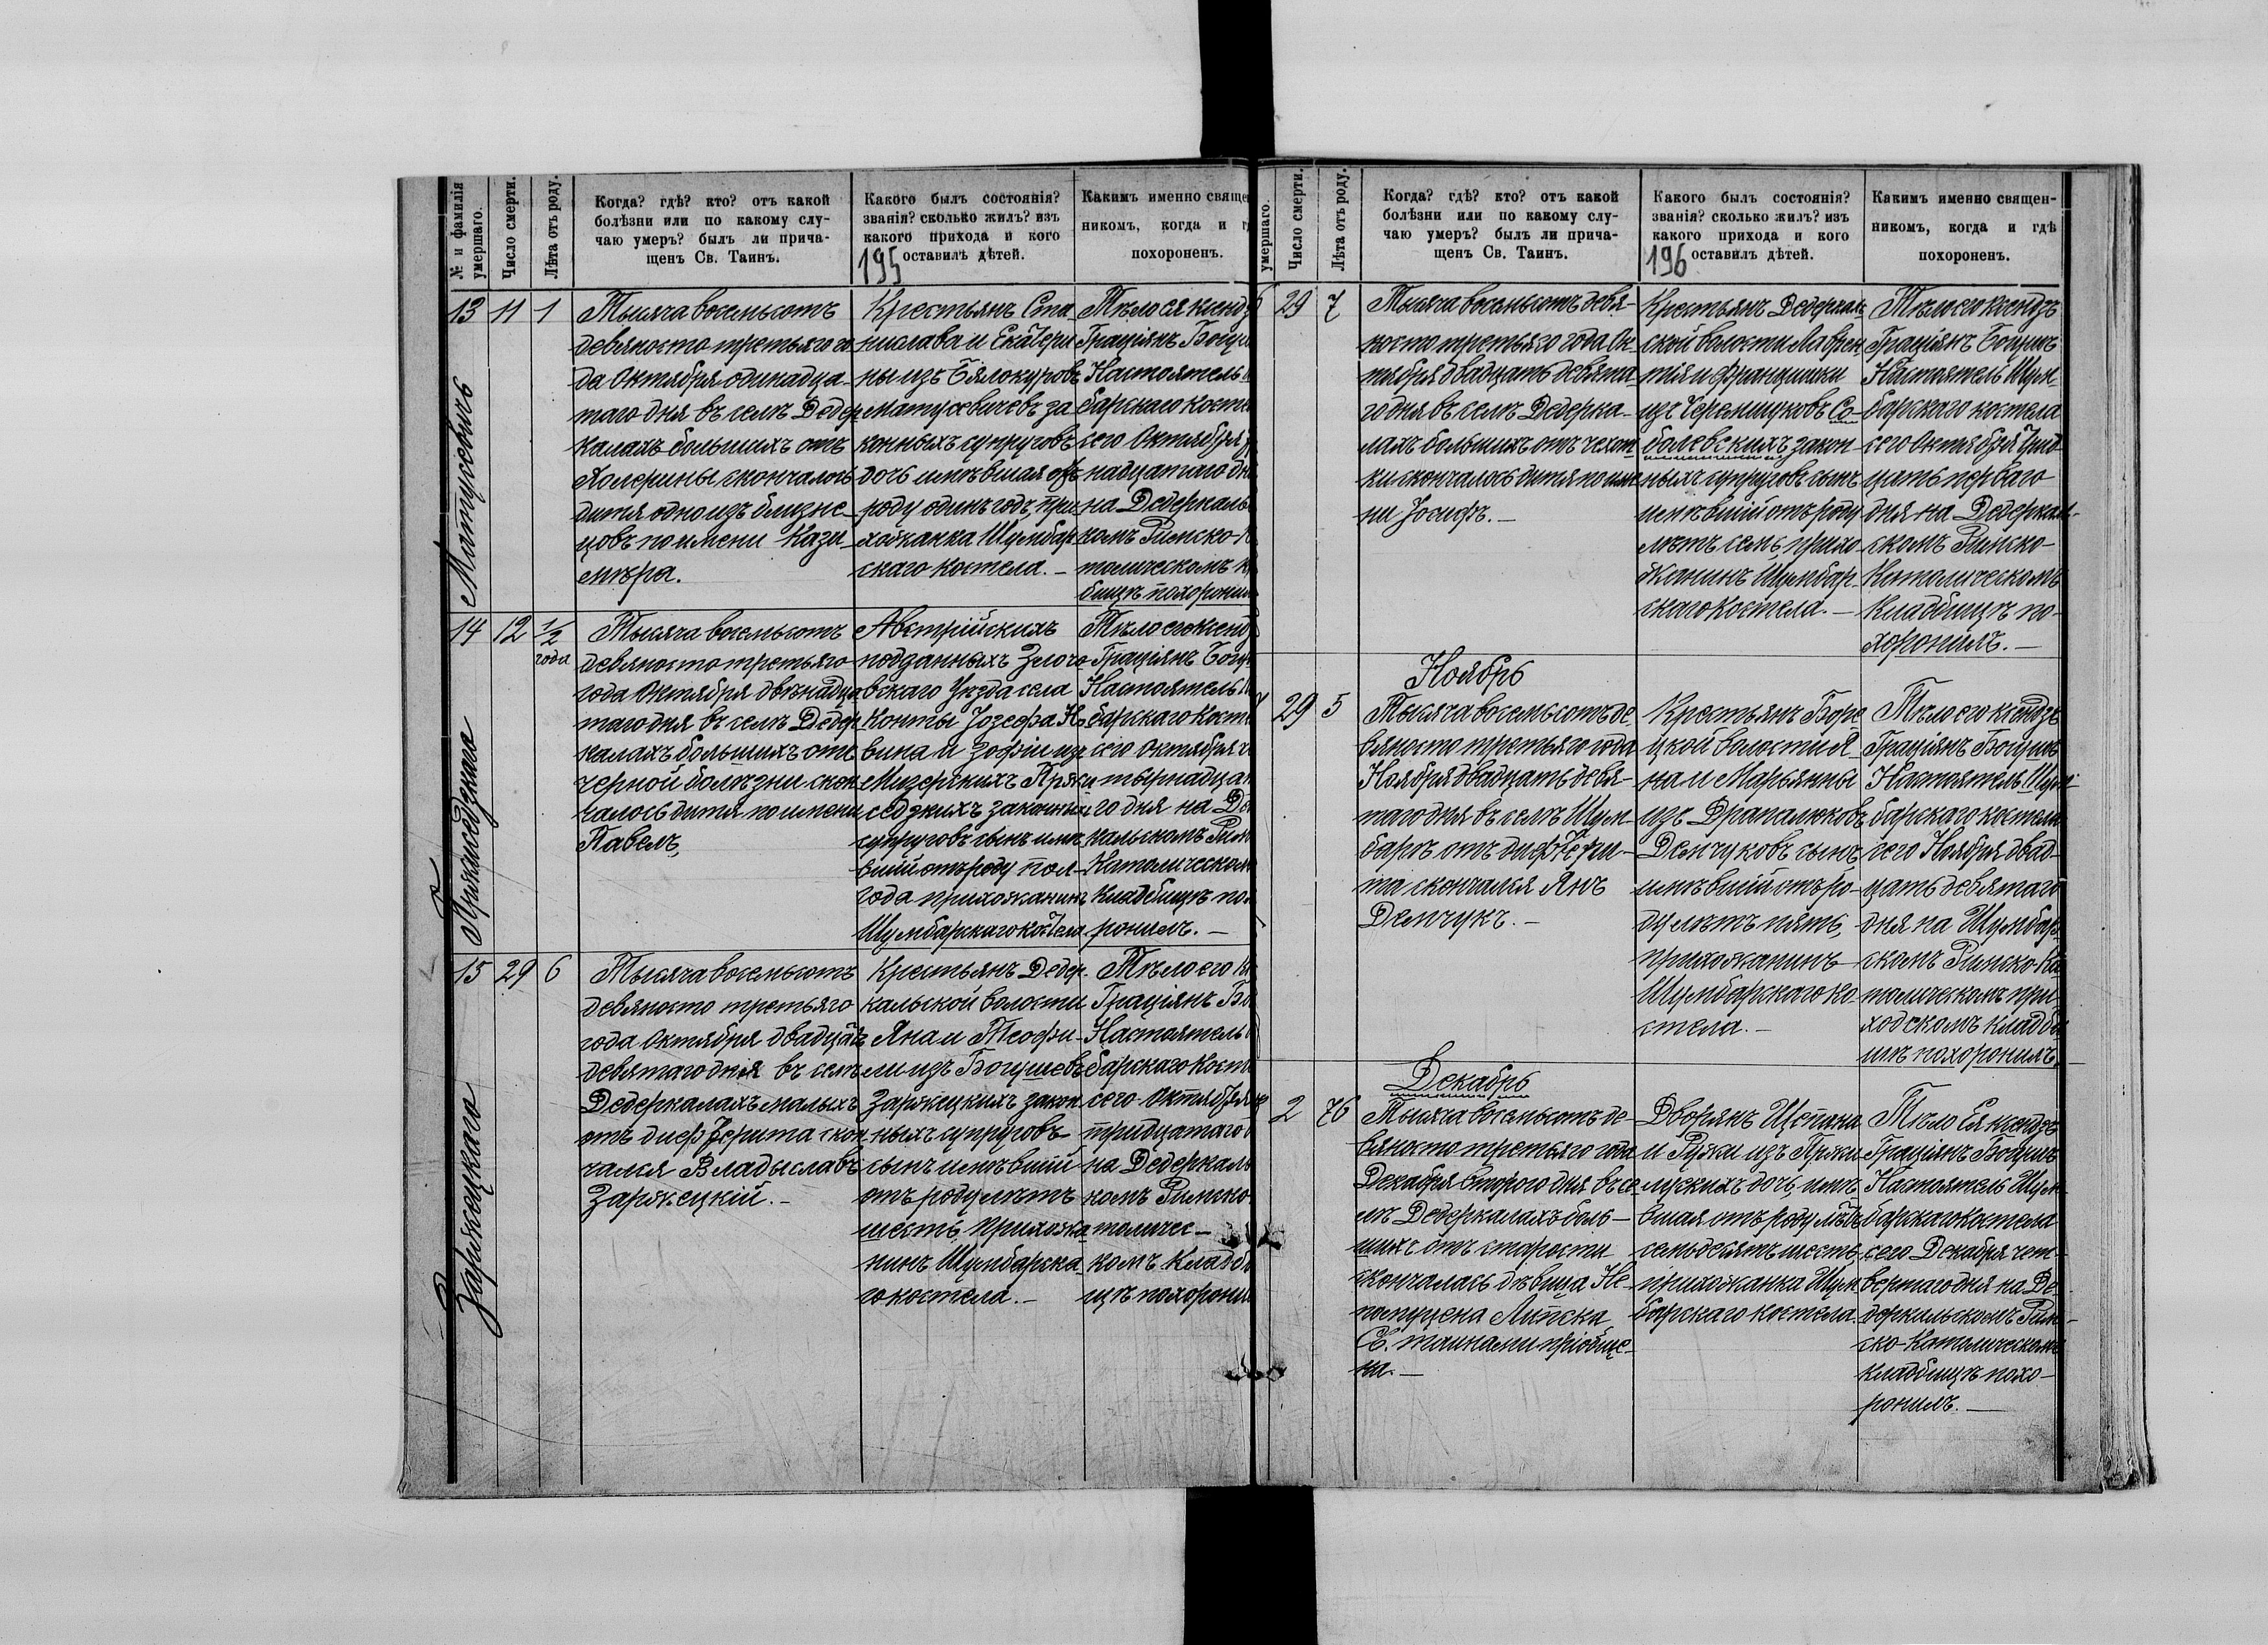 № и фамилія
умершаго.
Число смерти.
Лѣта отъ роду.
Когда? гдѣ? кто? отъ какой
болѣзни или по какому слу-
чаю умеръ? былъ ли прича-
щенъ Св. Таинъ.
Какого былъ состоянія?
званія? сколько жилъ? изъ
какого прихода и кого
оставилъ дѣтей.
195
Какимъ именно свяще
никомъ, когда и г
похороненъ.
13
Матусевичъ
11
1
Тысяча восемьсотъ
девяносто третьяго го
да Октября одинадца-
таго дня въ селѣ Дедер
калахъ большихъ отъ
Холерины скончалось
дитя одно изъ близне-
цовъ по имени Кази
мѣра.
Крестьянъ Ста-
нислава и Екатери
ны изъ Бялокуровъ
Матусевичевъ за
конныхъ супруговъ
дочь имѣвшая отъ
роду одинъ годъ, при
хожанка Шумбар
скаго костела.-
Тѣло ея ксенд
Граціянъ Боцу
Настоятель
барскаго косте
сего Октября
надцатаго дн
на Дедеркаль
комъ Римско-
толическомъ к
бищѣ похоронил
14
12
1/2
года
Тысяча восемьсотъ
девяносто третьяго
года Октября двѣнадца
таго дня въ селѣ Дедер
калахъ большихъ отъ
черной болѣзни скон
чалось дитя по имени
Павелъ,
Австрійскихъ
подданныхъ Злочо
вскаго Уѣзда села
Конты Јозефа
вина и Зофіи изъ
законныхъ
супруговъ сынъ имѣ
вшій отъ роду пол-
года прихожанинъ
Шумбарскаго костела
Тѣло его ксенд
Граціянъ Боцу
Настоятель
барскаго Косте
сего Октября ч
тырнадца
го дня на Де
кальскомъ Рим
Католическом
Кладбищѣ по
ронилъ.-
15
Заржецкаго
29
6
Тысяча восемьсотъ
девяносто третьяго
года Октября двадцать
девятаго дня въ селѣ
Дедеркалахъ малыхъ
отъ дифтерита скон
чался Владыславъ
Заржецкій.-
Крестьянъ Дедер-
кальской волости
Яна и Теофи-
ли изъ Богушевъ
Заржецкихъ закон
ныхъ супруговъ
сынъ имѣвшій
отъ роду лѣтъ
шесть, прихожа
нинъ Шумбарска-
го костела.-
Тѣло его к
Граціянъ Бо
Настоятель
барскаго Косте
сего Октября
тридцатаго
на Дедеркаль
комъ Римско
толичес-
комъ Кладби
щѣ похоронил
умершаго.
Число смерти.
Лѣта отъ роду.
Когда? гдѣ? кто? отъ какой
болѣзни или по какому слу-
чаю умеръ? былъ ли прича-
щенъ Св. Таинъ.
Какого былъ состоянія?
званія? сколько жилъ? изъ
какого прихода и кого
оставилъ дѣтей.
196
Какимъ именно священ-
никомъ, когда и гдѣ
похороненъ.
6
29
7
Тысяча восемьсотъ девя-
носто третьяго года Ок-
тября двадцать девята-
го дня въ селѣ Дедерка-
лахъ большихъ отъ чехот
ки скончалось дитя по име
ни Јосифъ.-
Крестьянъ Дедеркаль
ской волости Лаврен
тія и Францишки
изъ Черемшуковъ Со-
болевскихъ закон-
ныхъ супруговъ сынъ
имѣвшій отъ роду
лѣтъ семь, прихо-
жанинъ Шумбар-
скаго Костела.-
Тѣло его ксендзъ
Граціянъ Боцунъ
Настоятель Шум
барскаго костела
сего Октября трид
цать перваго
дня на Дедеркаль-
скомъ Римско-
Католическомъ
Кладбищѣ по-
хоронилъ.-
Ноябрь
7
29
5
Тысяча восемьсотъ де-
вяносто третьяго года
Ноября двадцать девя-
таго дня въ селѣ Шум-
барѣ отъ дифтери-
та скончался Янъ
Демчукъ.-
Крестьянъ Боре
цкой волости Я-
на и Марьянны
изъ Драпалюковъ
Демчуковъ сынъ
имѣвшій отъ ро-
ду лѣтъ пять,
прихожанинъ
Шумбарскаго ко-
стела.-
Тѣло его ксендзъ
Граціянъ Боцунъ
Настоятель Шум-
барскаго костела
сего Ноября двад-
цать девятаго
дня на Шумбар
скомъ Римско-Ка
толическомъ при-
ходскомъ кладби
щѣ похоронилъ.
Декабрь
8
2
76
Тысяча восемьсотъ де-
вяносто третьяго года
Декабря второго дня въ се
лѣ Дедеркалахъ боль-
шихъ отъ старости
скончалась дѣвица Не-
помуцена Липска
Св. таинами пріобще-
на.-
Дворянъ Щепана
и Ружи изъ
дочь, имѣ
вшая отъ роду лѣтъ
семьдесятъ шесть,
прихожанка Шум
барскаго костела.
Тѣло Ея ксендзъ
Граціянъ Боцунъ
Настоятель Шум-
барскаго костела
сего Декабря чет-
вертаго дня на Де-
деркальскомъ Рим-
ско-Католическомъ
кладбищѣ похо-
ронилъ.-